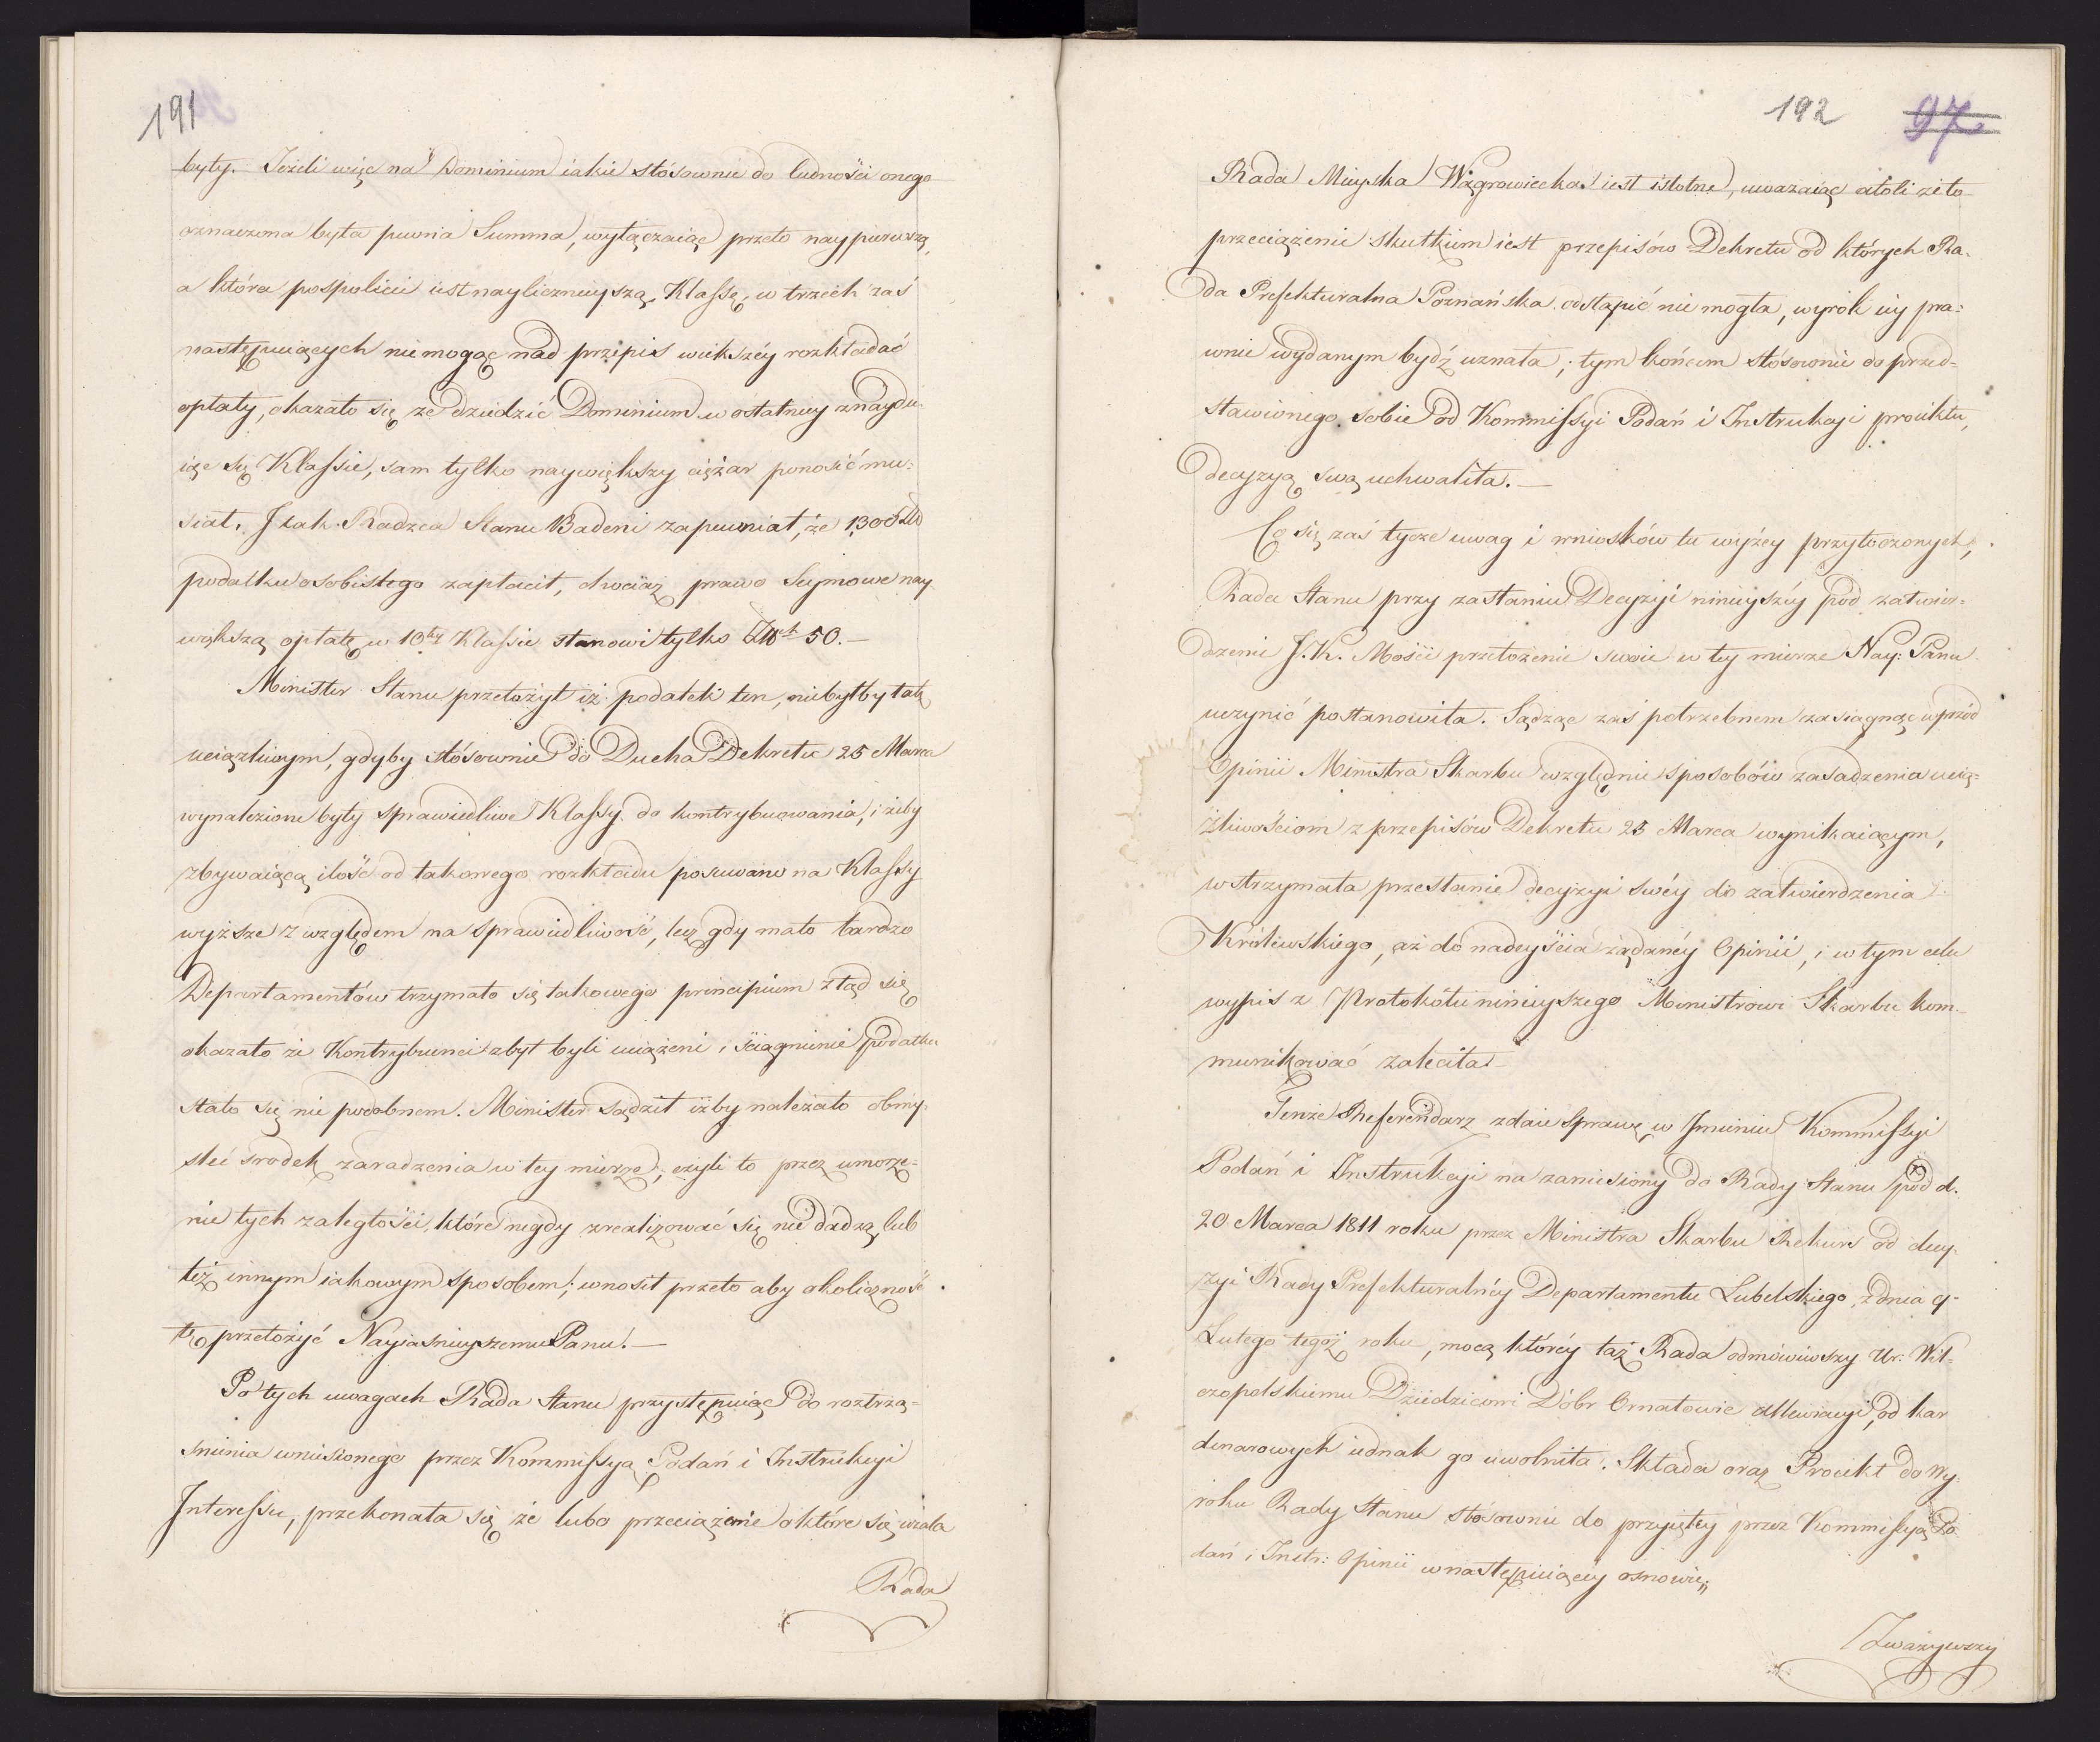 191
były. Jeżeli więc na Dominium iakie stósownie do ludności onego
oznaczona była pewna Summa, wyłączaiąc przeto nay pierwszą,
a która pospolicie iest naylicznieyszą Klassę, w trzech zaś
następuiących niemogąc nad przepis większéy rozkładać
opłaty, okazało się że dziedzic Dominium w ostatniey znaydu-
iąc się Klassie, sam tylko naywiększy ciężar ponosić mu-
siał. J tak Radzca Stanu Badeni zapewniał, że 1300 Złł
podatku osobistego zapłacił, chociaż prawo Seymowe nay
większą opłatę w 10tey Klassie stanowi tylko Złłch 50.—
Minister Stanu przełożył iż podatek ten, niebyłby tak
uciążliwym, gdyby stósownie do Ducha Dekretu 25 Marca
wynalezione były sprawiedliwe Klassy do kontrybuowania, i żeby
zbywaiącą ilość od takowego rozkładu posuwano na Klassy
wyższe z względem na sprawiedliwość, lecz gdy mało bardzo
Departamentów trzymało się takowego principium ztąd się
okazało że Kontrybuenci zbyt byli uciążeni i ściągnienie podatku
stało się nie podobnem. Minister sądził iżby należało obmy-
slić srodek zaradzenia w tey mierze, czyli to przez umorze-
nie tych zaległości, które nigdy zrealizować się nie dadzą, lub
też innym iakowym sposobem; wnosił przeto aby okoliczność
tę przełożyć Nayiasnieyszemu Panu.—
Po tych uwagach Rada Stanu przystępuiąc do roztrzą-
snienia wniesionego przez Kommissyą Podań i Instrukcyi
Interessu, przekonała się że lubo przeciążenie o które się użala
Rada
192 97
Rada Mieyska Wągrowiecka iest istotne, uważaiąc atoli że to
przeciążenie skutkiem iest przepisów Dekretu od których Ra-
da Prefekturalna Poznańska odstąpić nie mogła, wyrok iéy pra-
wnie wydanym bydź uznała; tym końcem stósownie do przed-
stawionego sobie od Kommissyi Podań i Instrukcyi proiektu,
decyzyą swą uchwaliła.—
Co się zaś tycze uwag i wniosków tu wyżéy przytoczonych,
Rada Stanu przy zasłaniu Decyzyi ninieyszéy pod zatwier-
dzenie J. K. Mości przełożenie swoie w tey mierze Nay: Panu
uczynić postanowiła. Sądząc zaś potrzebnem zasiągnąć wprzód
Opinii Ministra Skarbu względnie sposobów zaradzenia ucią-
żliwościom z przepisów Dekretu 25 Marca wynikaiącym,
wstrzymała przesłanie decyzyi swéy do zatwierdzenia
Królewskiego, aż do nadeyścia żądanéy Opinii, i w tym celu
wypis z Protokółu ninieyszego Ministrowi Skarbu kom-
munikować zaleciła.—
Tenże Referendarz zdaie sprawę w Jmieniu Kommissyi
Podań i Instrukcyi na zaniesiony do Rady Stanu pod d.
20 Marca 1811 roku przez Ministra Skarbu Rekurs od decy-
zyi Rady Prefekturalnéy Departamentu Lubelskiego, z dnia 9
Lutego tegoż roku, mocą któréy taż Rada odmówiwszy Ur. Wil-
czopolskiemu Dziedzicowi Dóbr Ornatowic allewiacyi, od kar
denarowych iednak go uwolniła. Składa oraz Proiekt do Wy-
roku Rady Stanu stósownie do przyiętéy przez Kommissyą Po-
dań i Instr: Opinii w następuiącéy osnowie„
Zważywszy